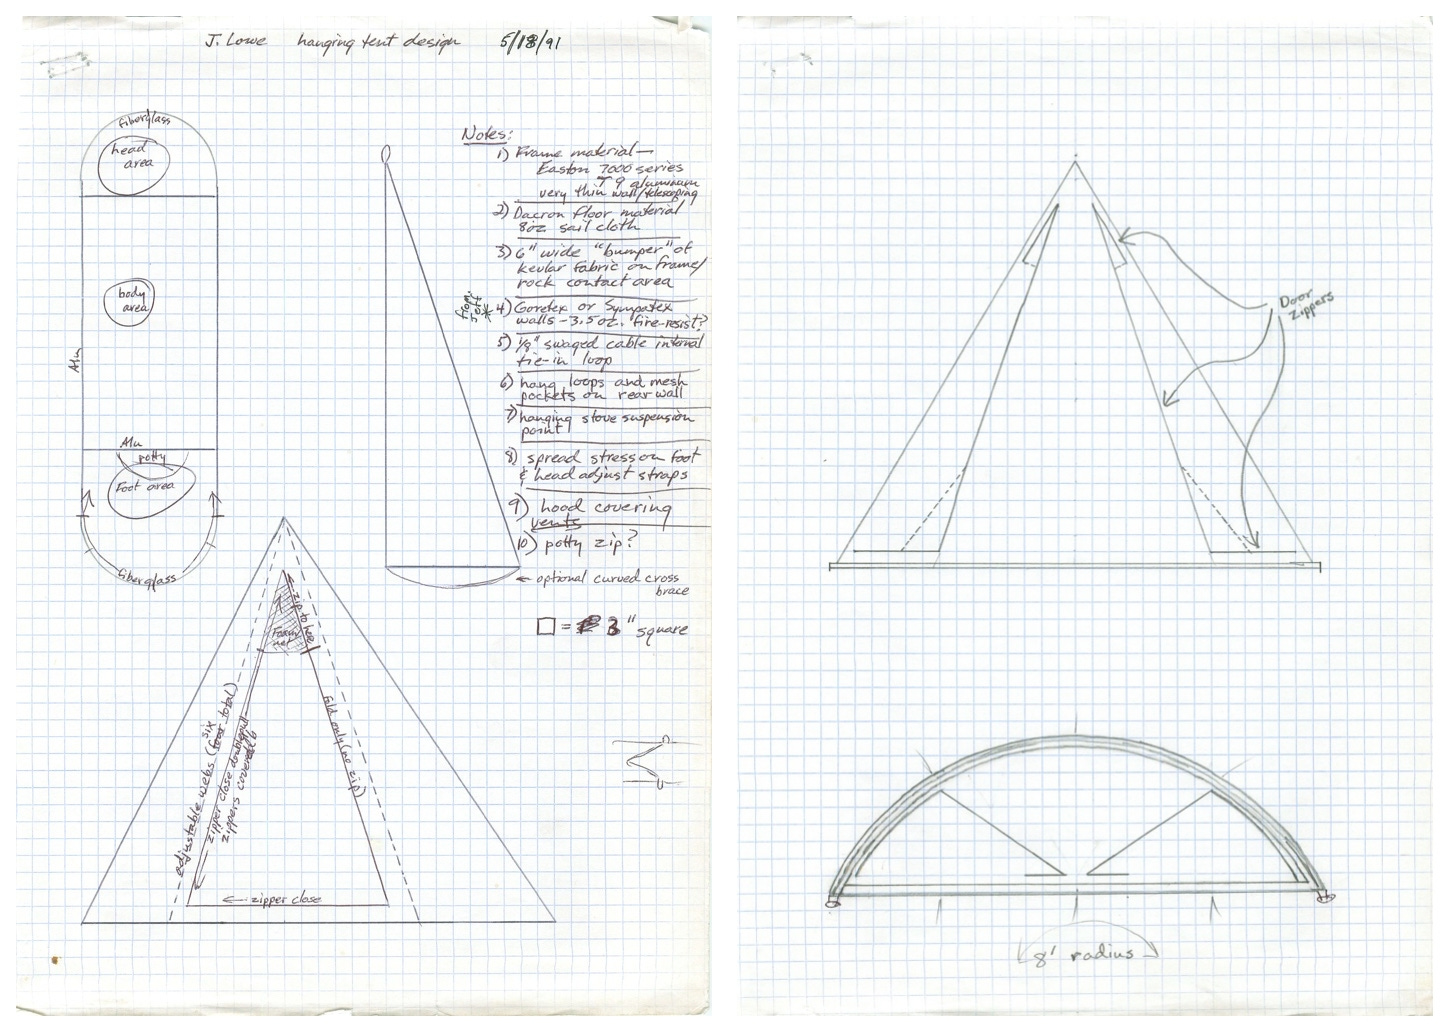 J. Lowe hanging tent design 5/18/91
fiberglass
head
area
body
area
Alu
Alu
potty
Foot area
fiberglass
Notes:
1) Frame material —
Easton 7000 series
T 9 aluminum
very thin wall/telescoping
2) Dacron floor material
8oz sail cloth
3) 6" wide "bumper" of
kevlar fabric on frame/
rock contact area
from
Jeff
* 4) Goretex or Sympatex
walls - 3.5 oz. fire-resist?
5) 1/8" swaged cable internal
tie-in loop
6) hang loops and mesh
pockets on rear wall
7) hanging stove suspension
point
8) spread stress on foot
& head adjust straps
9) hood covering
vents
10) potty zip?
← optional curved cross
brace
□ = 3" square
zip to here
net
adjustable webs (four total)
six
zipper close double pull
zippers covered
fold only (no zip)
← zipper close
Door
Zippers
8' radius